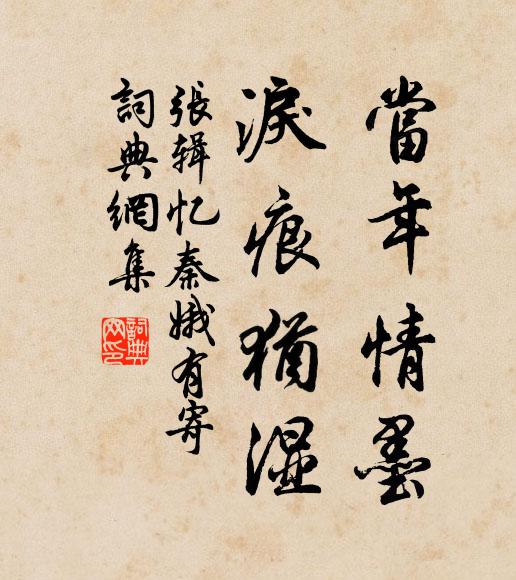 當年情墨
淚痕猶濕
張辑忆秦娥有寄
詞典網集
詞典網印